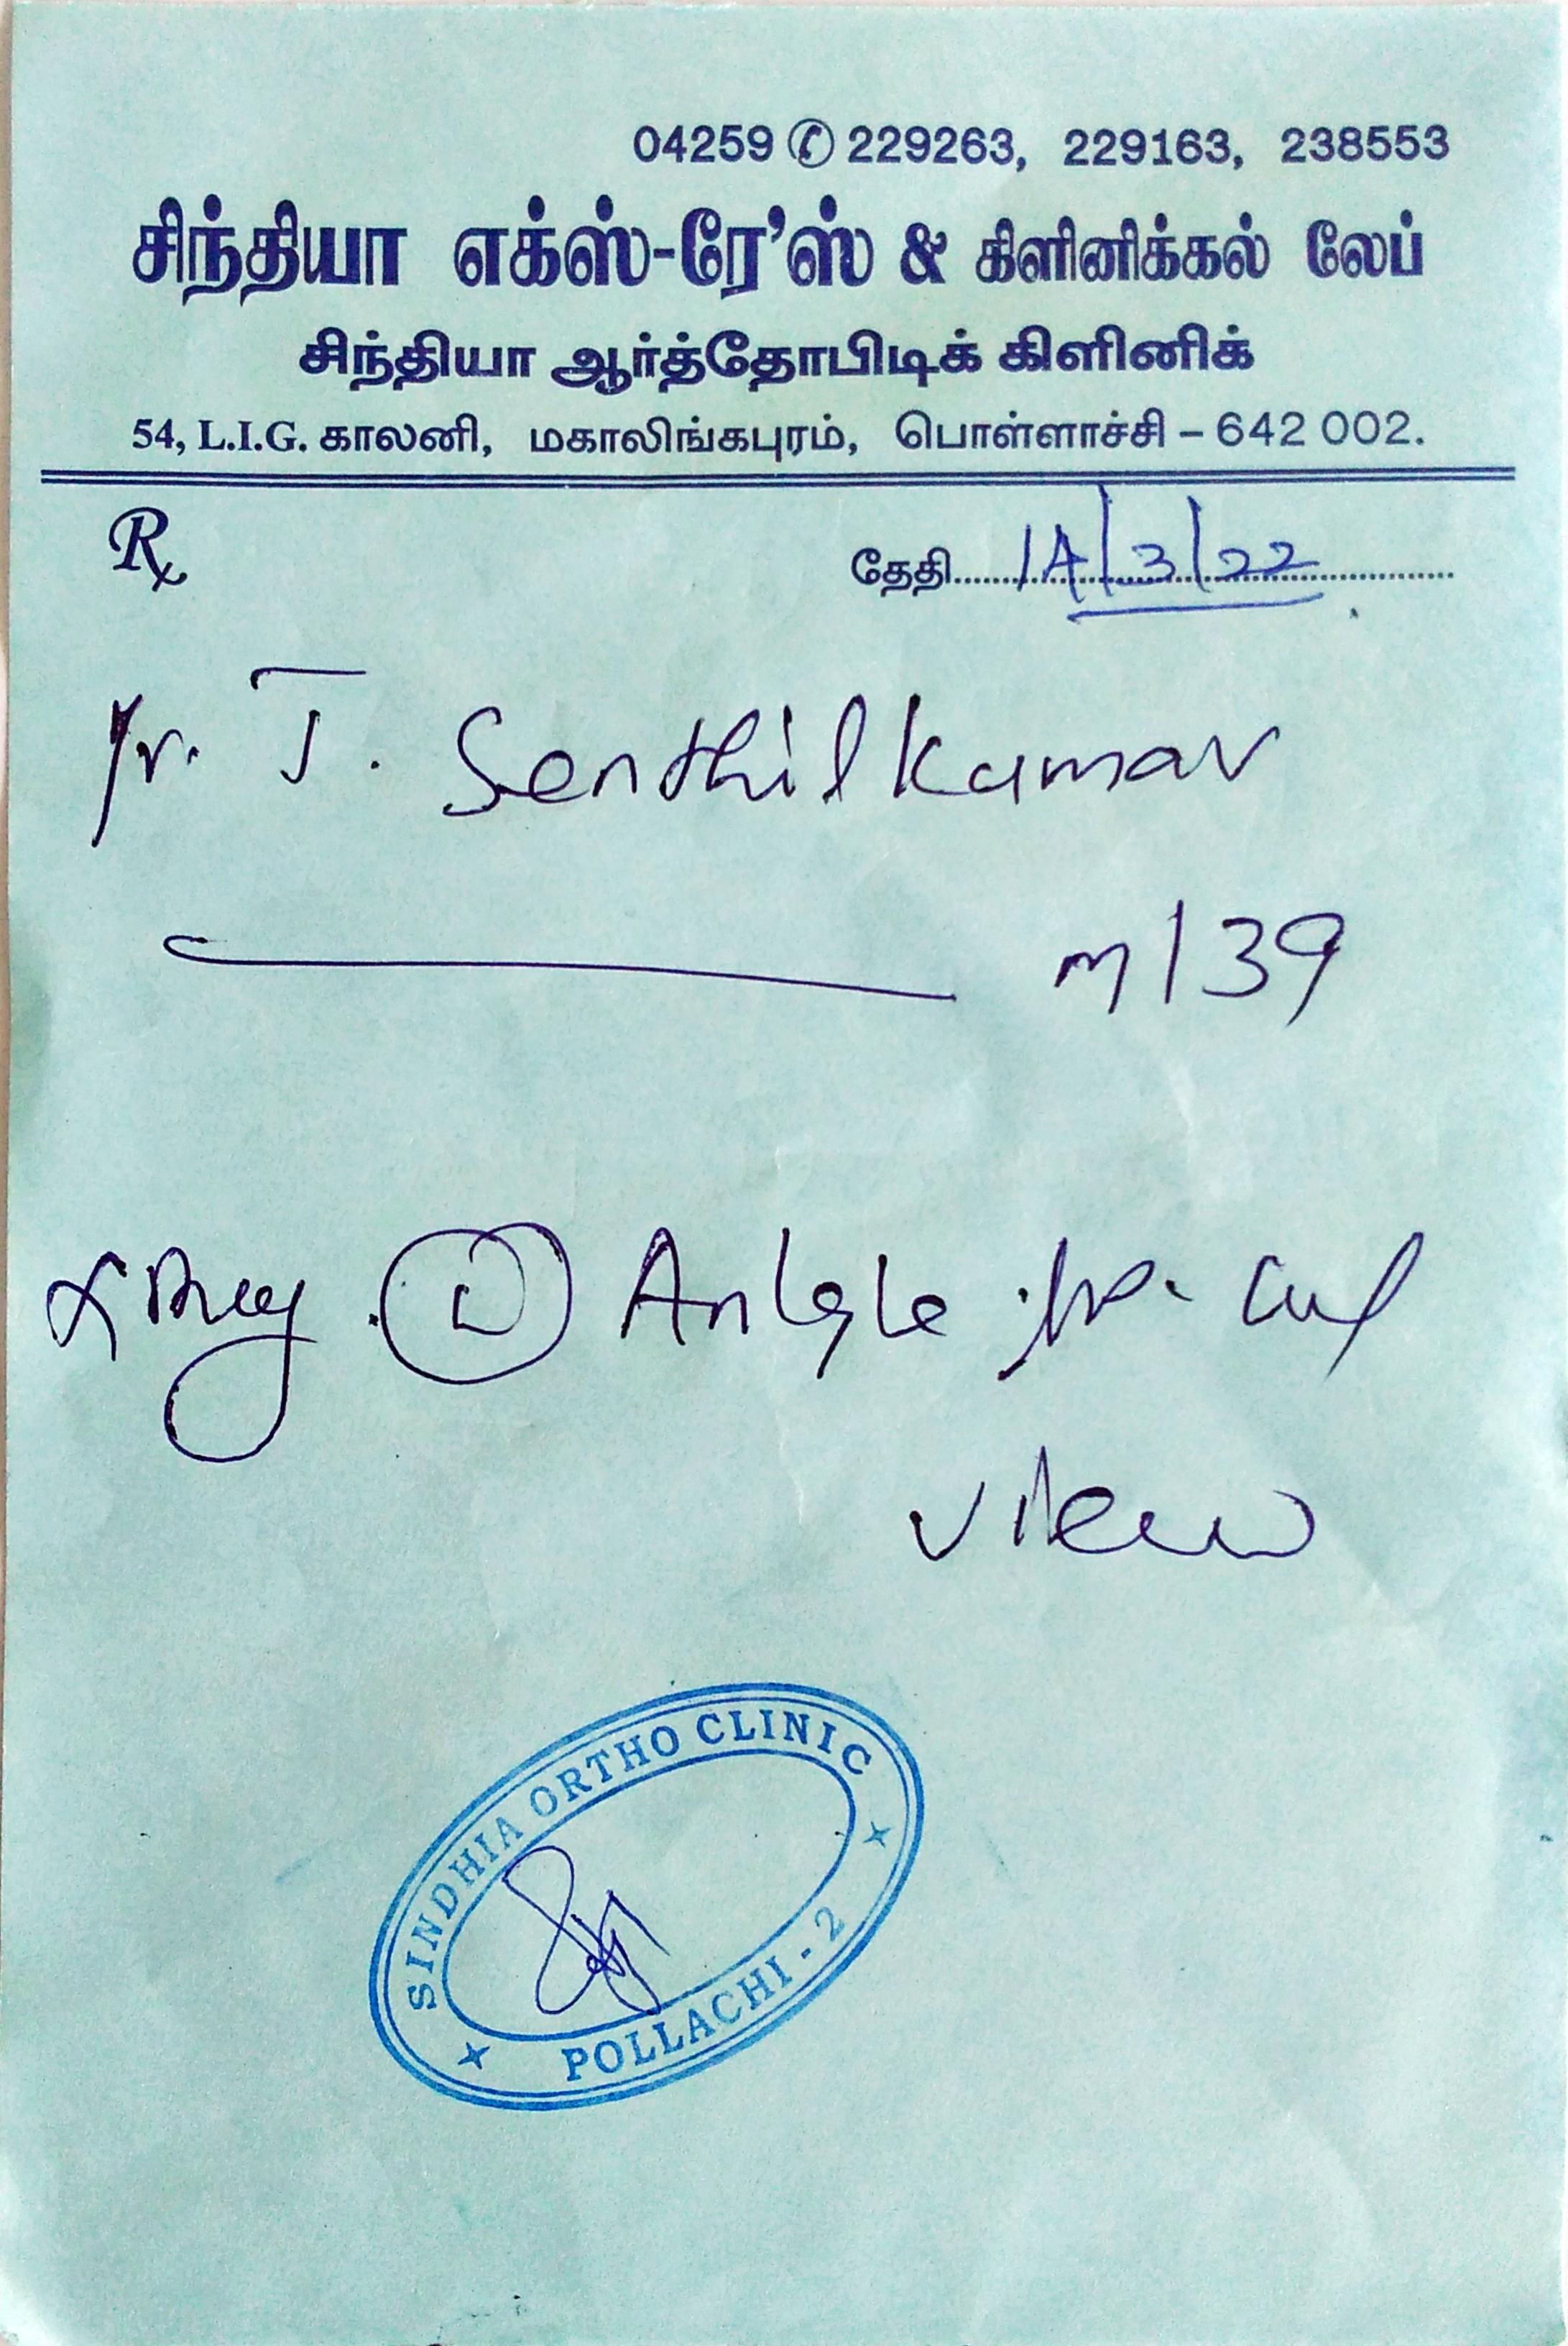 04259 ✆ 229263, 229163, 238553
சிந்தியா எக்ஸ்-ரே'ஸ் & கிளினிக்கல் லேப்
சிந்தியா ஆர்த்தோபிடிக் கிளினிக்
54, L.I.G. காலனி, மகாலிங்கபுரம், பொள்ளாச்சி - 642 002.
Rx தேதி 14/3/22
T. Senthil Kumar
M/39
X Ray L Ankle
view
SINDHIA ORTHO CLINIC
POLLACHI - 2